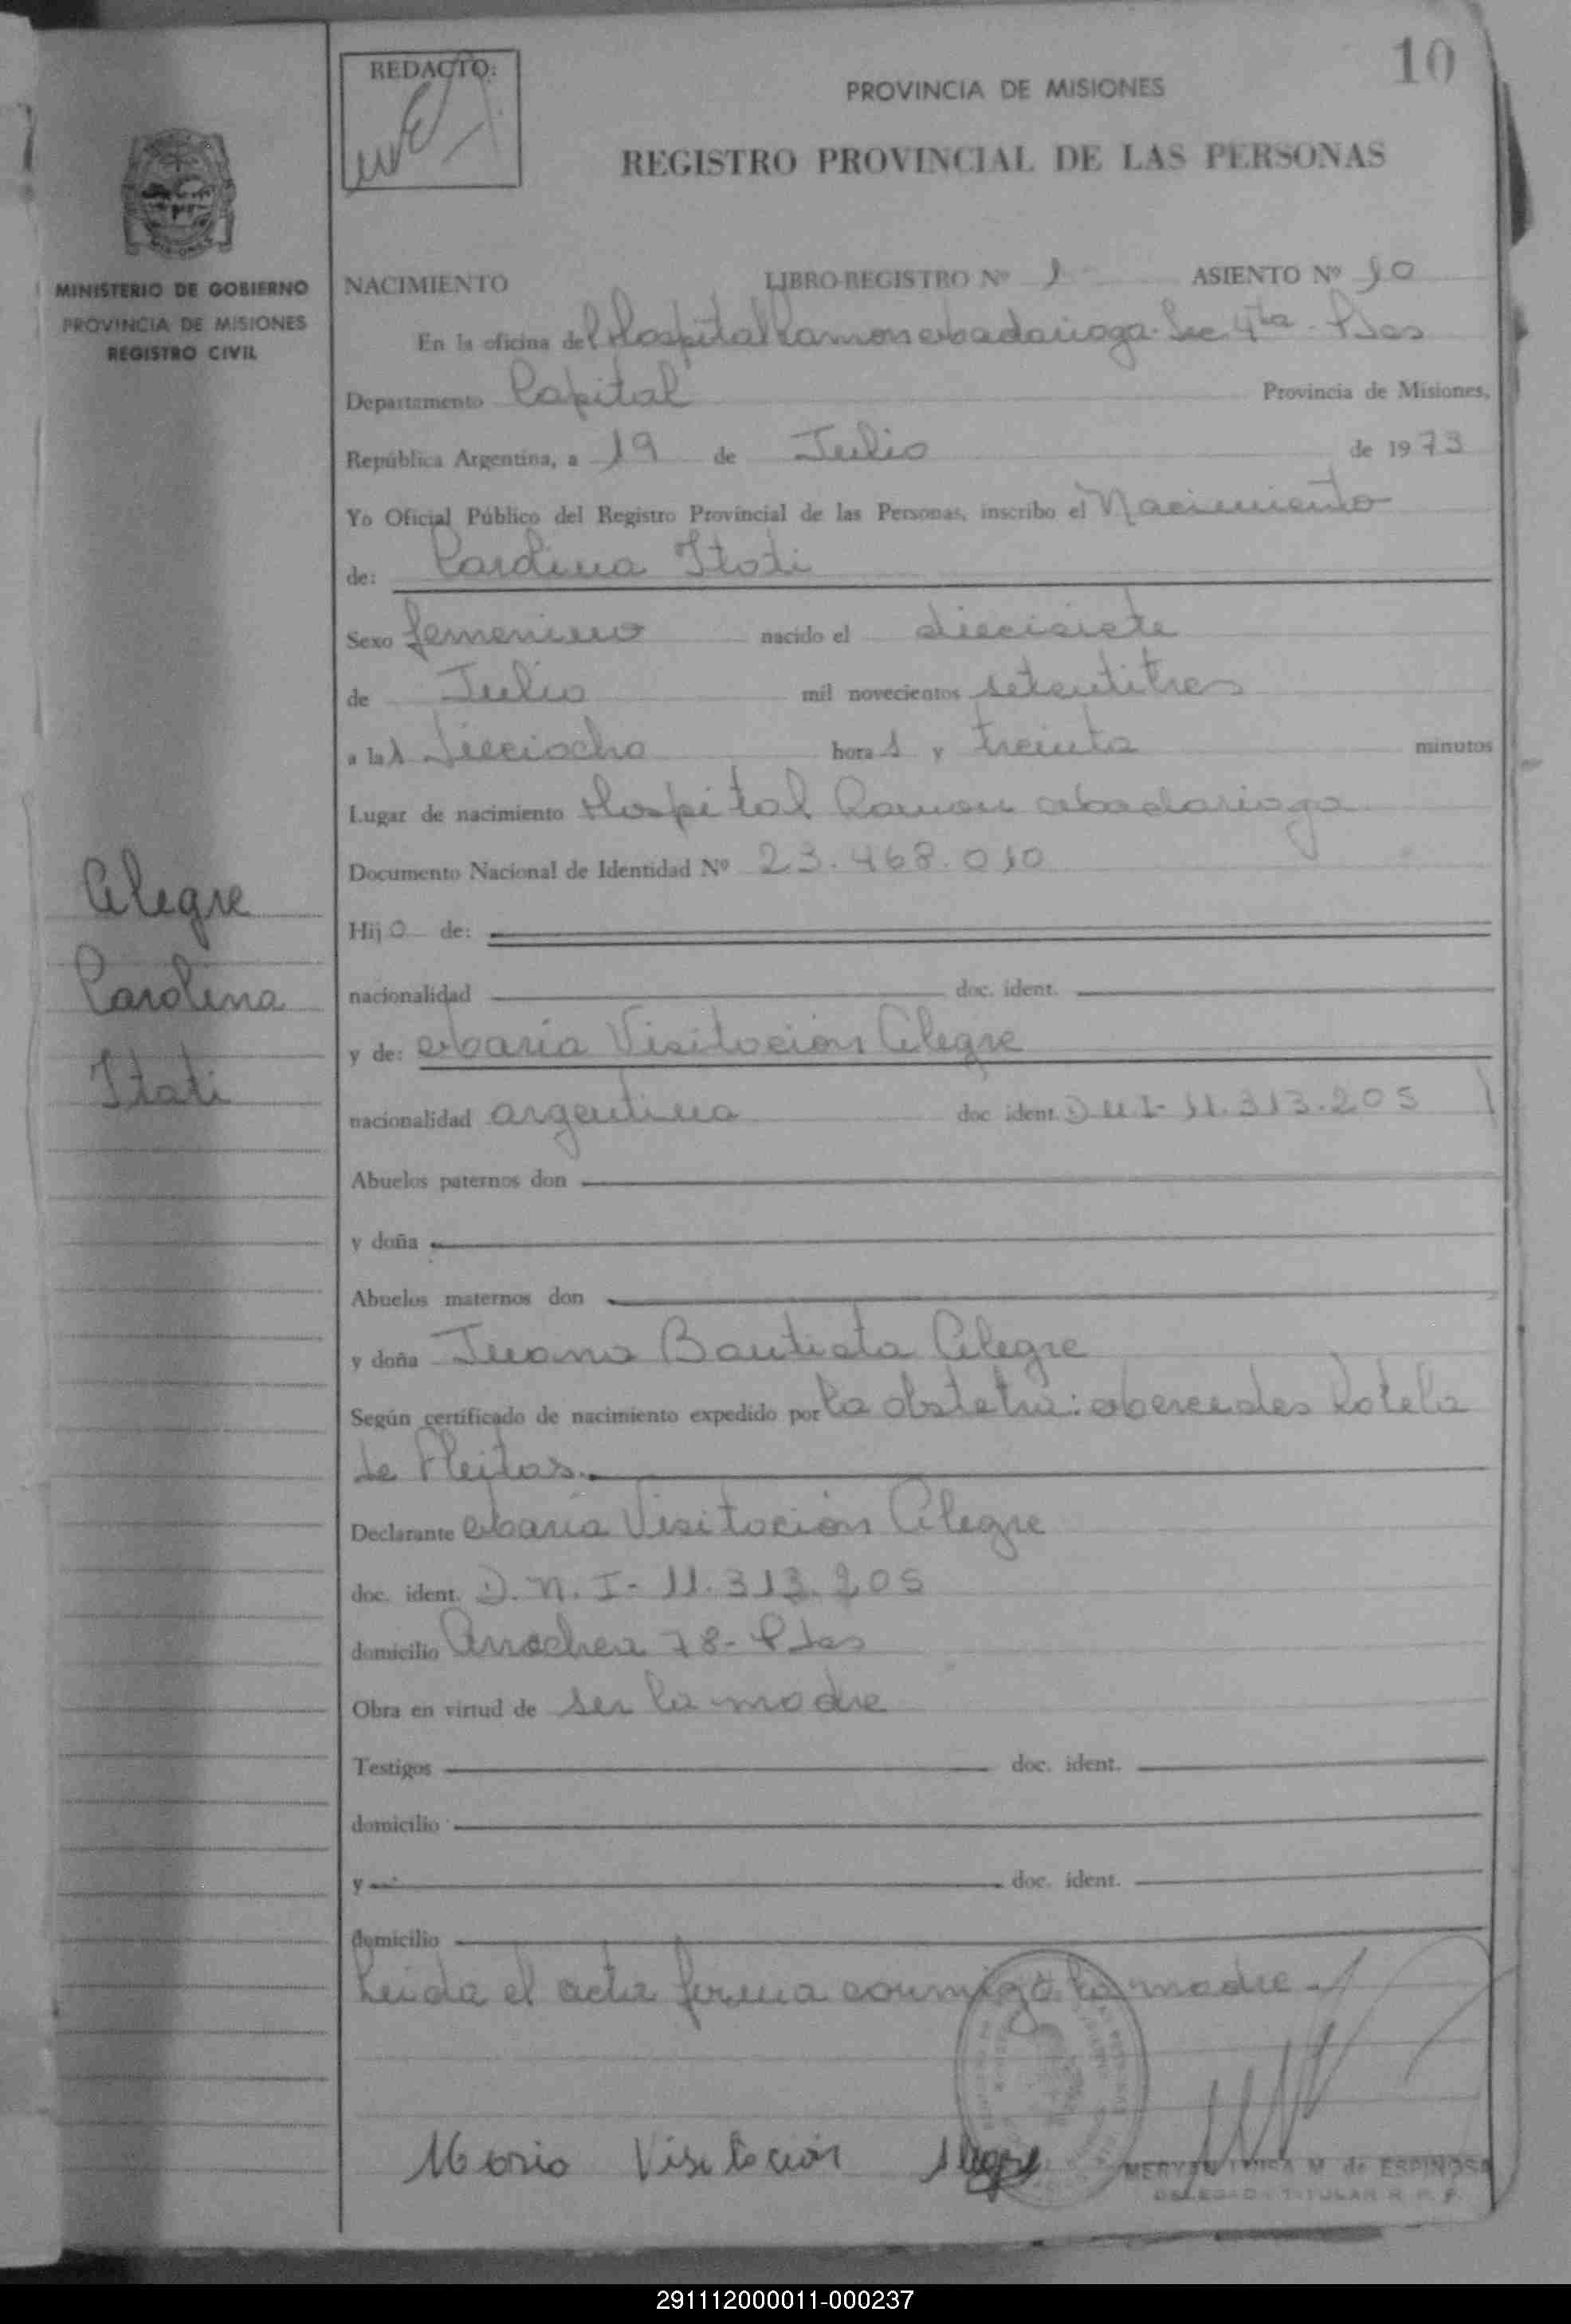 10
REDACTO:
PROVINCIA DE MISIONES
REGISTRO PROVINCIAL DE LAS PERSONAS
MINISTERIO DE GOBIERNO
PROVINCIA DE MISIONES
REGISTRO CIVIL
Alegre
Carolina
Itati
NACIMIENTO LIBRO-REGISTRO Nº 1 ASIENTO Nº 10
En la oficina del Hospital Ramon Madariaga - Sec 4ta - Pdas
Departamento Capital Provincia de Misiones,
República Argentina, a 19 de Julio de 1973
Yo Oficial Público del Registro Provincial de las Personas, inscribo el Nacimiento
de: Carolina Itati
Sexo femenino nacido el diecisiete
de Julio mil novecientos setentitres
a las Dieciocho horas y treinta minutos
Lugar de nacimiento Hospital Ramon Madariaga
Documento Nacional de Identidad Nº 23.468.010
Hijo de:
nacionalidad doc. ident.
y de: Maria Visitación Alegre
nacionalidad argentina doc ident. D N I - 11.313.205
Abuelos paternos don
y doña
Abuelos maternos don
y doña Juana Bautista Alegre
Según certificado de nacimiento expedido por la obstetra: Mercedes Rotela
de Fleitas.
Declarante Maria Visitación Alegre
doc. ident. D.N.I - 11.313.205
domicilio Arrechea 78 - Pdas
Obra en virtud de ser la madre
Testigos doc. ident.
domicilio
y doc. ident.
domicilio
Leida el acta firma conmigo la madre -
Maria Visitación Alegre
MERYAN LUISA M. de ESPINOSA
DELEGADA TITULAR R. P. P.
291112000011-000237